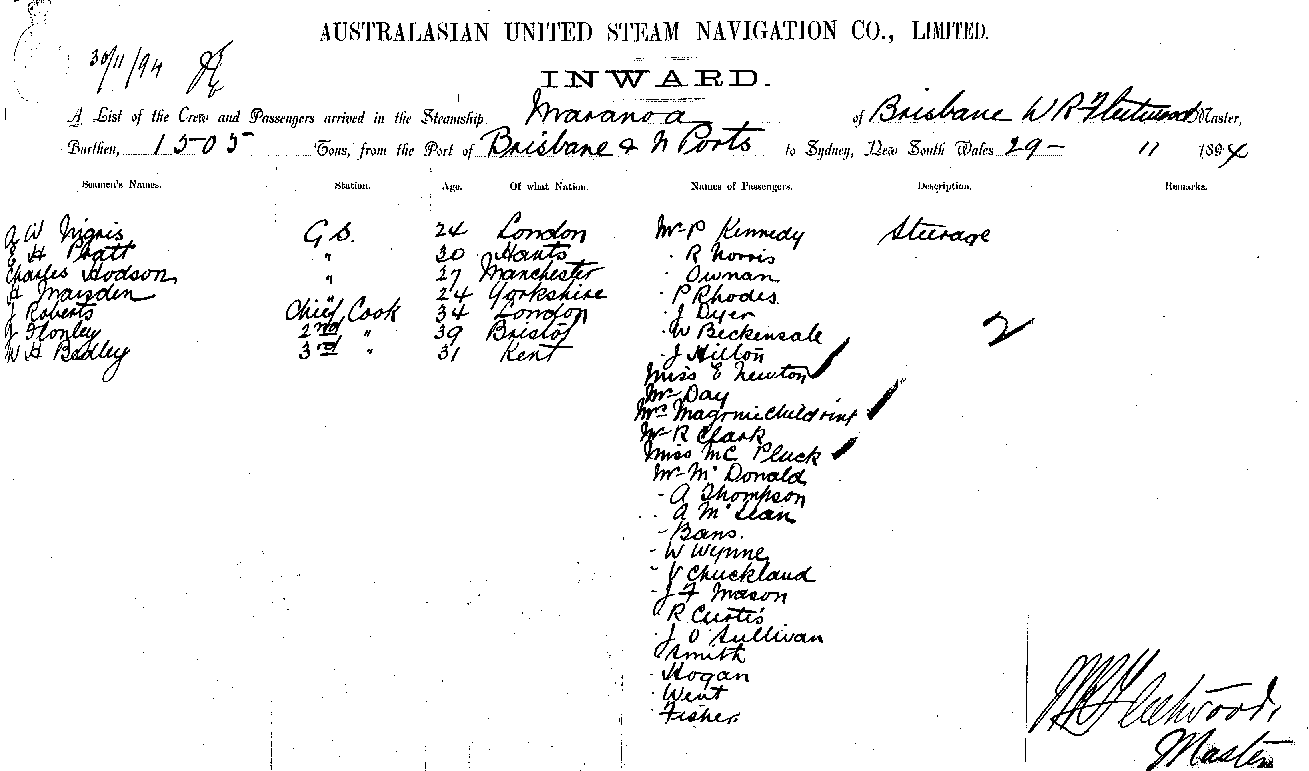 AUSTRALASIAN UNITED STEAM NAVIGATION CO., LIMITED.
30/11/94
INWARD.
A List of the Crew and Passengers arrived in the Steamship Maranoa of Brisbane W R Fleetwood Master,
Burthen, 1505 Tons, from the Port of Brisbane & N Ports to Sydney, New South Wales 29- 11 1894
Seamen's Names. Station. Age. Of what Nation. Names of Passengers. Description. Remarks.
W G.S. 24 London Mr P Kennedy Steerage
E H Pratt " 30 Hants · R Norris
Charles Hodson " 27 Manchester · Ownan
H Marsden " 24 Yorkshire · P Rhodes
J Roberts Chief Cook 34 London · J Dyer
J Stonley 2nd " 39 Bristol · W Beckensale
W H Badley 3rd " 31 Kent · J Hilton
2
Miss E Newton
Mr Day
Mrs Child & inft
Mr R Clark
Miss Mc Pluck
Mr McDonald
- A Thompson
- A McLean
- Bans.
- W Wynne
- Chuckland
- J F Mason
· R Curtis
· J O'Sullivan
· Smith
· Hogan
· Went
· Fisher
W R Fleetwood,
Master